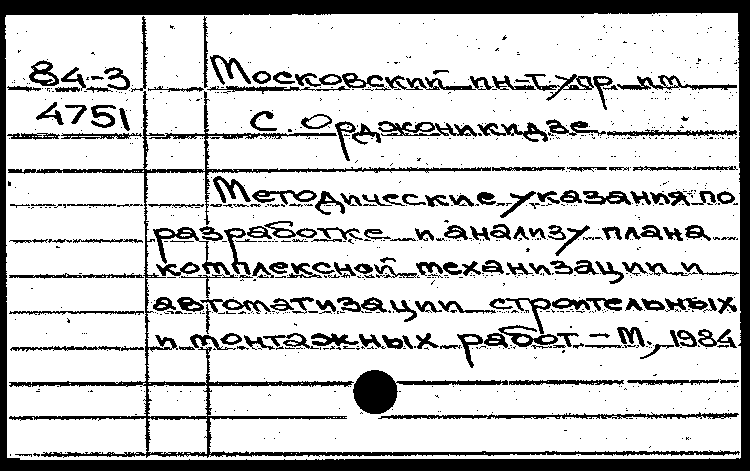 84-3 Московский ин-т упр. им.
4751 С. Орджоникидзе
Методические указания по
разработке и анализу плана
комплексной механизации и
автоматизации строительных
и монтажных работ. – М., 1984